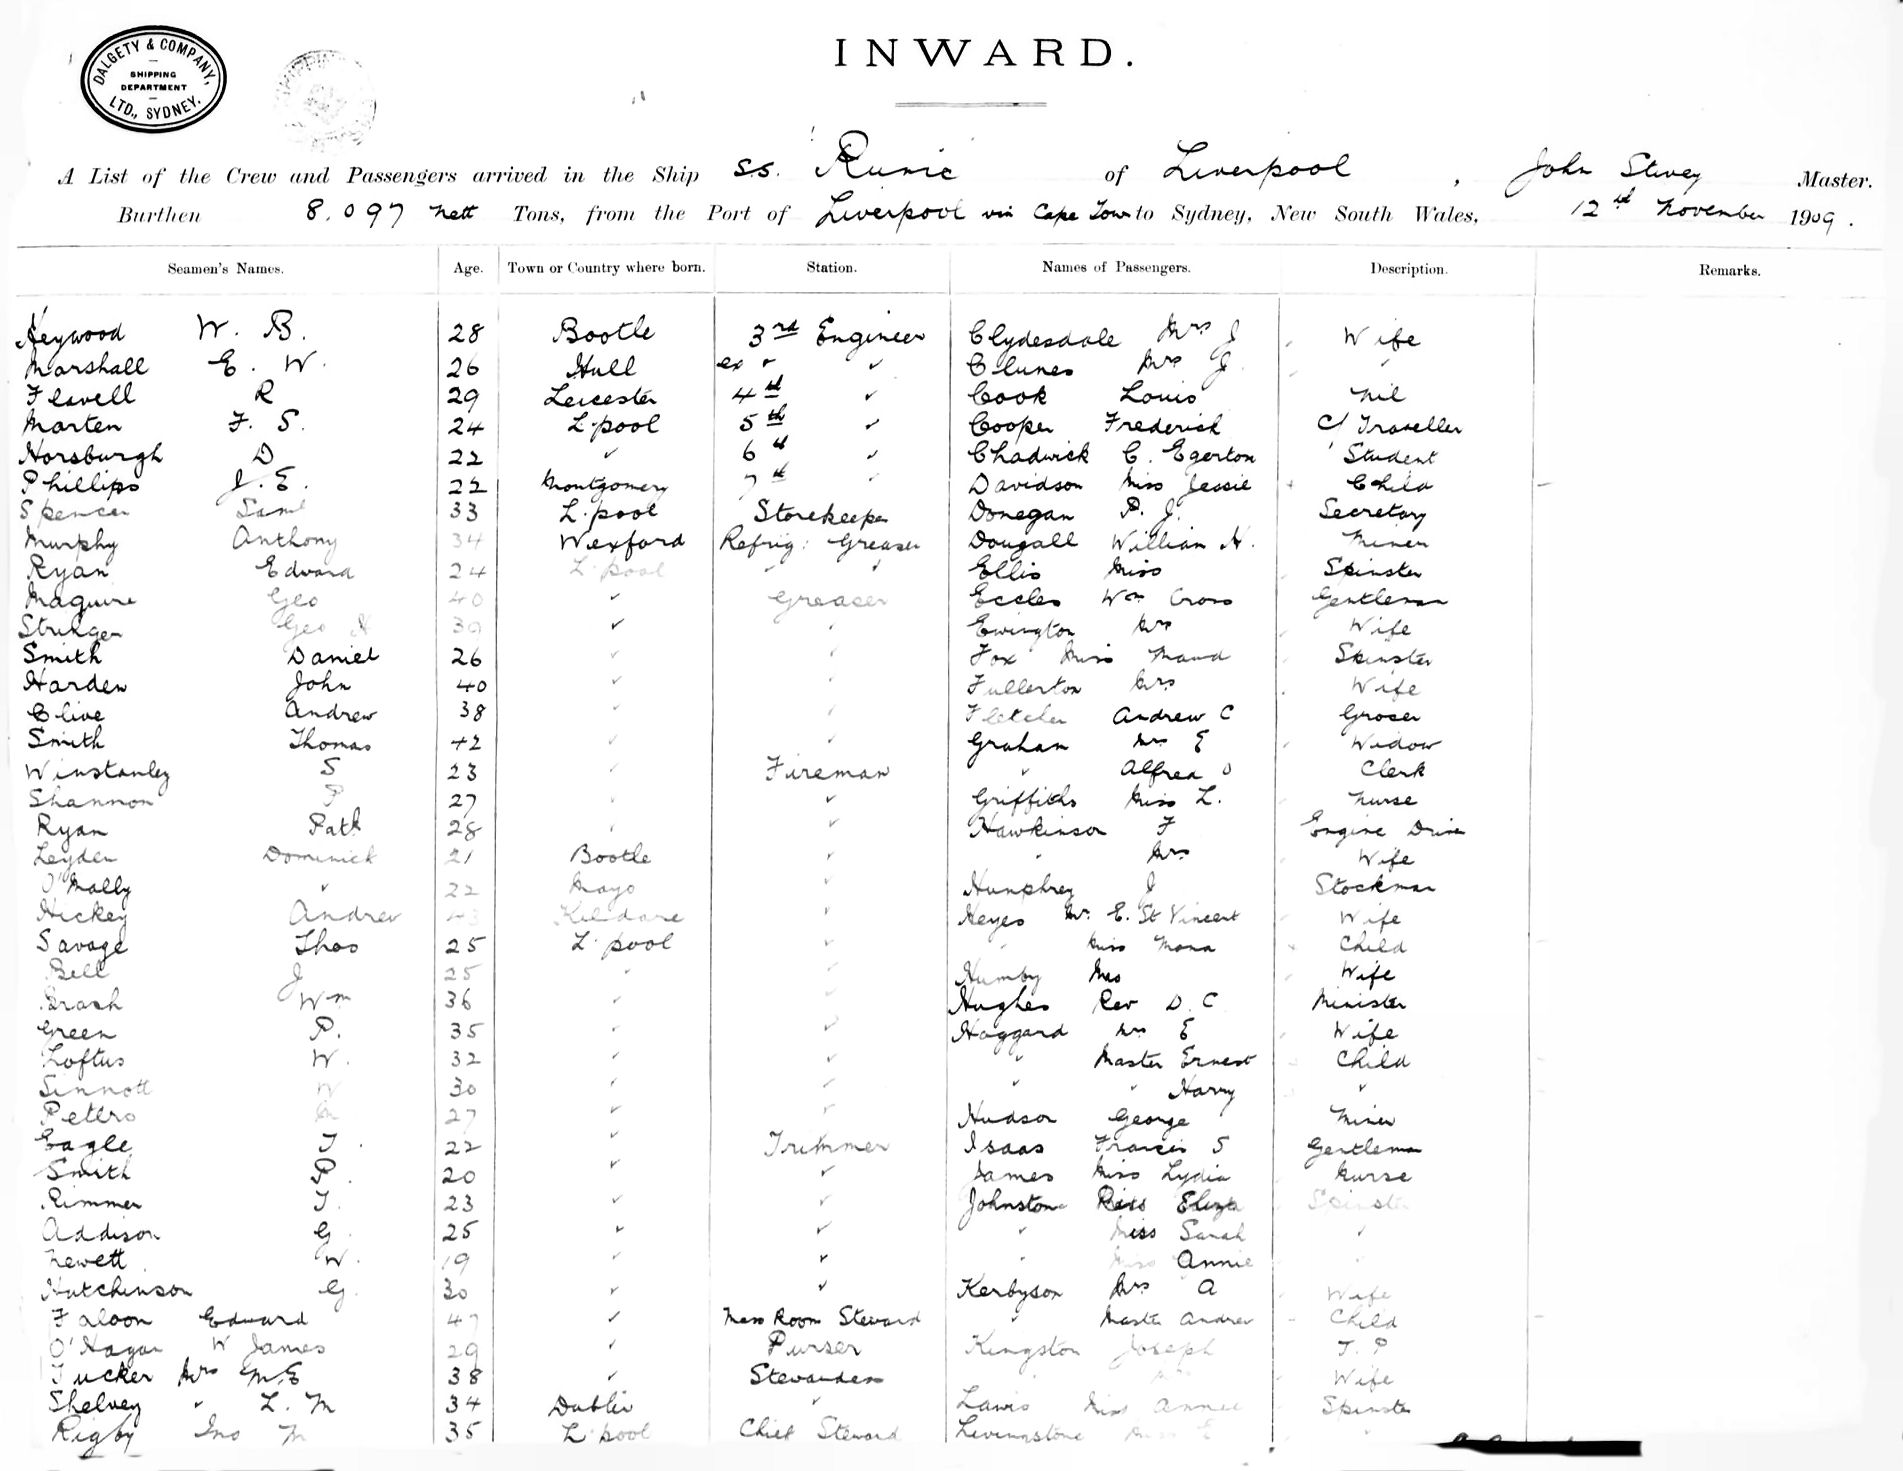 DALGETY & COMPANY, LTD., SYDNEY.
SHIPPING
DEPARTMENT
INWARD.
A List of the Crew and Passengers arrived in the Ship S.S. Runic of Liverpool, John Stivey Master.
Burthen 8,097 nett Tons, from the Port of Liverpool via Cape Town to Sydney, New South Wales, 12th November 1909.
Seamen's Names. Age. Town or Country where born. Station. Names of Passengers. Description. Remarks.
Heywood W. B. 28 Bootle 3rd Engineer Clydesdale Mrs J Wife
Marshall E. W. 26 Hull ex " " Clunes Mrs J. "
Flavell R 29 Leicester 4th " Cook Louis Nil
Marten F. S. 24 L'pool 5th " Cooper Frederick C/ Traveller
Horsburgh D 22 " 6th " Chadwick C. Egerton Student
Phillips J. E. 22 Montgomery 7th " Davidson Miss Jessie Child
Spencer Saml 33 L'pool Storekeeper Donegan P. J. Secretary
Murphy Anthony 34 Wexford Refrig: Greaser Dougall William H. Miner
Ryan Edward 24 L'pool " " Ellis Miss Spinster
Maguire Geo 40 " Greaser Eccles Wm Cross Gentleman
Stringer Geo H 39 " " Ewington Mrs Wife
Smith Daniel 26 " " Fox Miss Maud Spinster
Harden John 40 " " Fullerton Mrs Wife
Clive Andrew 38 " " Fletcher Andrew C Grocer
Smith Thomas 42 " " Graham Mrs E Widow
Winstanley S 23 " Fireman " Alfred Clerk
Shannon P 27 " " Griffiths Miss L. Nurse
Ryan Patk 28 " " Hawkinson F Engine Driver
Leyden Dominick 21 Bootle " " Mrs Wife
O'Mally " 22 Mayo " Humphrey J Stockman
Hickey Andrew 43 Kildare " Heyes Mrs E. St Vincent Wife
Savage Thos 25 L'pool " " Miss Mona Child
Bell J 25 " " Humby Mrs Wife
Brash Wm 36 " " Hughes Rev D. C Minister
Green P. 35 " " Haggard Mrs E Wife
Loftus W. 32 " " " Master Ernest Child
Sinnott W 30 " " " " Harry "
Peters 27 " " Hudson George Miner
Eagle T. 22 " Trimmer Isaas Francis S Gentleman
Smith P. 20 " " James Miss Lydia Nurse
Rimmer T. 23 " " Johnstone Miss Eliza Spinster
Addison G. 25 " " " Miss Sarah "
Newett W. 19 " " " Miss Annie "
Hutchinson G. 30 " " Kerbyson Mrs A Wife
Faloon Edward 47 " Mess Room Steward " Master Andrew Child
O'Hagan W James 29 " Purser Kingston Joseph J. P
Tucker Mrs M.E 38 " Stewardess " Mrs Wife
Shelvey " L. M 34 Dublin " Lawis Miss Annie Spinster
Rigby Jno M 35 L'pool Chief Steward Livingstone Miss E "